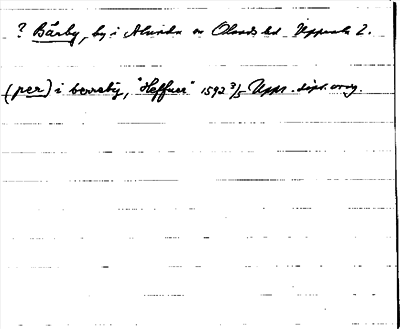 ? Bärby, by i Alunda sn Olands hd Uppsala l.
(per) i berreby, "Heffner" 1592 3/5 Upps. dipl. orig.